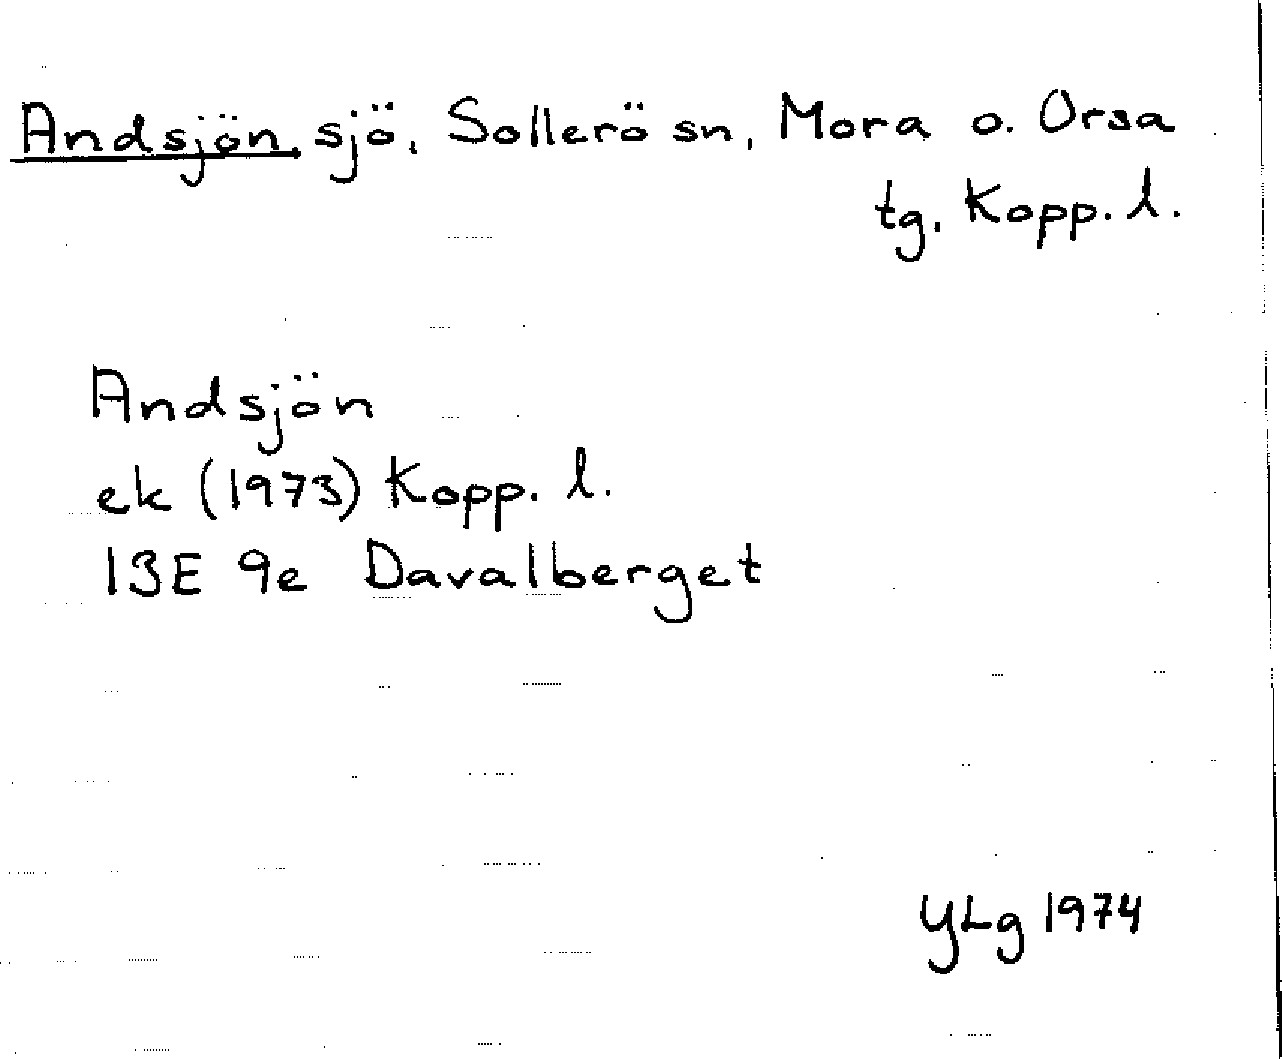 Andsjön, sjö, Sollerö sn, Mora o. Orsa
tg, Kopp. l.
Andsjön
ek (1973) Kopp. l.
13E 9e Davalberget
YLg 1974